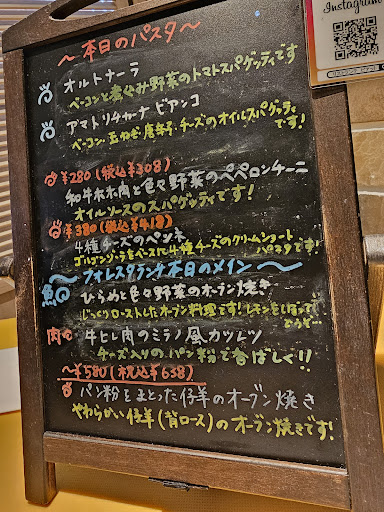 Instagram
～本日のパスタ～
オルトナーラ
ベーコンと煮込み野菜のトマトスパゲッティです
アマトリチャーナ ビアンコ
ベーコン、玉ねぎ、唐辛子、チーズのオイルスパゲッティです!
¥280(税込¥308)
和牛ホホ肉と色々野菜のペペロンチーニ
オイルソースのスパゲッティです!
¥380(税込¥418)
4種チーズのペンネ
ゴルゴンゾーラをベースに4種チーズのクリームショートパスタです!
～フォレスタランチ本日のメイン～
魚の ひらめと色々野菜のオーブン焼き
じっくりローストしたオーブン料理です!レモンをしぼってどうぞ…
肉の 牛ヒレ肉のミラノ風カツレツ
チーズ入りのパン粉で香ばしく!!
～¥580(税込¥638)
パン粉をまとった仔羊のオーブン焼き
やわらかい仔羊(背ロース)のオーブン焼きです!